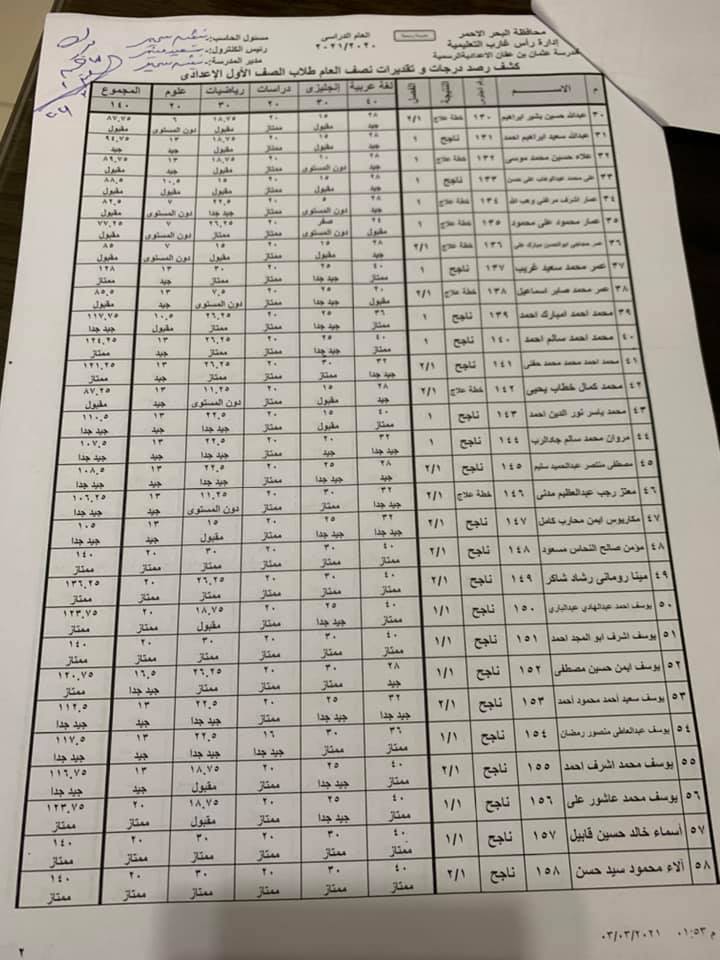 محافظة البحر الاحمر
إدارة رأس غارب التعليمية
مدرسة عثمان بن عفان الاعدادية الرسمية
العام الدراسى
٢٠٢١/٢٠٢٠
مسئول الحاسب:
رئيس الكنترول:
مدير المدرسة:
كشف رصد درجات و تقديرات نصف العام طلاب الصف الأول الإعدادى
م الاســـم النتيجة الفصل لغة عربية إنجليزى دراسات رياضيات علوم المجموع
٤٠ ٣٠ ٢٠ ٣٠ ٢٠ ١٤٠
٣٠ عبدالله حسين بشير ابراهيم ١٣٠ خطة علاج ٢/١ ٢٨ ١٥ ٢٠ ١٨,٧٥ ٦ ٨٧,٧٥
جيد مقبول ممتاز مقبول دون المستوى مقبول
٣١ عبدالله سعيد ابراهيم احمد ١٣١ ناجح ١ ٢٨ ١٥ ٢٠ ١٨,٧٥ ١٣ ٩٤,٧٥
جيد مقبول ممتاز مقبول جيد جيد
٣٢ علاء حسين محمد موسى ١٣٢ خطة علاج ١ ٢٨ ١٠ ٢٠ ١٨,٧٥ ١٣ ٨٩,٧٥
جيد دون المستوى ممتاز مقبول جيد مقبول
٣٣ على محمد عبدالوهاب على حسن ١٣٣ ناجح ١ ٢٨ ١٥ ٢٠ ١٥ ١٠,٥ ٨٨,٥
جيد مقبول ممتاز مقبول مقبول مقبول
٣٤ عمار اشرف مرغنى وهب الله ١٣٤ خطة علاج ١ ٢٨ ٥ ٢٠ ٢٢,٥ ٧ ٨٢,٥
جيد دون المستوى ممتاز جيد جدا دون المستوى مقبول
٣٥ عمار محمود على محمود ١٣٥ خطة علاج ١ ٢٤ صفر ٢٠ ٢٦,٢٥ ٧ ٧٧,٢٥
مقبول دون المستوى ممتاز ممتاز دون المستوى مقبول
٣٦ ١٣٦ خطة علاج ٢/١ ٢٨ ١٥ ٢٠ ١٥ ٧ ٨٥
جيد مقبول ممتاز مقبول دون المستوى مقبول
٣٧ عمر محمد سعيد غريب ١٣٧ ناجح ١ ٤٠ ٢٥ ٢٠ ٣٠ ١٣ ١٢٨
ممتاز جيد جدا ممتاز ممتاز جيد ممتاز
٣٨ عمر محمد صابر اسماعيل ١٣٨ خطة علاج ٢/١ ٢٠ ٢٥ ٢٠ ٧,٥ ١٣ ٨٥,٥
مقبول جيد جدا ممتاز دون المستوى جيد مقبول
٣٩ محمد احمد امبارك احمد ١٣٩ ناجح ١ ٣٦ ٢٥ ٢٠ ٢٦,٢٥ ١٠,٥ ١١٧,٧٥
ممتاز جيد جدا ممتاز ممتاز مقبول جيد جدا
٤٠ محمد احمد سالم احمد ١٤٠ ناجح ١ ٤٠ ٢٥ ٢٠ ٢٦,٢٥ ١٣ ١٢٤,٢٥
ممتاز جيد جدا ممتاز ممتاز جيد ممتاز
٤١ محمد احمد محمد محمد حفنى ١٤١ ناجح ٢/١ ٣٢ ٣٠ ٢٠ ٢٦,٢٥ ١٣ ١٢١,٢٥
جيد جدا ممتاز ممتاز ممتاز جيد ممتاز
٤٢ محمد كمال خطاب يحيى ١٤٢ خطة علاج ٢/١ ٢٨ ١٥ ٢٠ ١١,٢٥ ١٣ ٨٧,٢٥
جيد مقبول ممتاز دون المستوى جيد مقبول
٤٣ محمد ياسر نور الدين احمد ١٤٣ ناجح ١ ٤٠ ١٥ ٢٠ ٢٢,٥ ١٣ ١١٠,٥
ممتاز مقبول ممتاز جيد جدا جيد جيد جدا
٤٤ مروان محمد سالم جادالرب ١٤٤ ناجح ١ ٣٢ ٢٠ ٢٠ ٢٢,٥ ١٣ ١٠٧,٥
جيد جدا جيد ممتاز جيد جدا جيد جيد جدا
٤٥ مصطفى منتصر عبدالحميد سليم ١٤٥ ناجح ٢/١ ٢٨ ٢٥ ٢٠ ٢٢,٥ ١٣ ١٠٨,٥
جيد جيد جدا ممتاز جيد جدا جيد جيد جدا
٤٦ معتز رجب عبدالعظيم مدنى ١٤٦ خطة علاج ٢/١ ٣٢ ٣٠ ٢٠ ١١,٢٥ ١٣ ١٠٦,٢٥
جيد جدا ممتاز ممتاز دون المستوى جيد جيد جدا
٤٧ مكاريوس ايمن محارب كامل ١٤٧ ناجح ٢/١ ٣٢ ٢٥ ٢٠ ١٥ ١٣ ١٠٥
جيد جدا جيد جدا ممتاز مقبول جيد جيد جدا
٤٨ مؤمن صالح النحاس مسعود ١٤٨ ناجح ٢/١ ٤٠ ٣٠ ٢٠ ٣٠ ٢٠ ١٤٠
ممتاز ممتاز ممتاز ممتاز ممتاز ممتاز
٤٩ مينا رومانى رشاد شاكر ١٤٩ ناجح ٢/١ ٤٠ ٣٠ ٢٠ ٢٦,٢٥ ٢٠ ١٣٦,٢٥
ممتاز ممتاز ممتاز ممتاز ممتاز ممتاز
٥٠ يوسف احمد عبدالهادي عبدالباري ١٥٠ ناجح ١/١ ٤٠ ٢٥ ٢٠ ١٨,٧٥ ٢٠ ١٢٣,٧٥
ممتاز جيد جدا ممتاز مقبول ممتاز ممتاز
٥١ يوسف اشرف ابو المجد احمد ١٥١ ناجح ١/١ ٤٠ ٣٠ ٢٠ ٣٠ ٢٠ ١٤٠
ممتاز ممتاز ممتاز ممتاز ممتاز ممتاز
٥٢ يوسف ايمن حسين مصطفى ١٥٢ ناجح ١/١ ٢٨ ٣٠ ٢٠ ٢٦,٢٥ ١٦,٥ ١٢٠,٧٥
جيد ممتاز ممتاز ممتاز جيد جدا ممتاز
٥٣ يوسف سعيد أحمد محمود أحمد ١٥٣ ناجح ٢/١ ٣٢ ٢٥ ٢٠ ٢٢,٥ ١٣ ١١٢,٥
جيد جدا جيد جدا ممتاز جيد جدا جيد جيد جدا
٥٤ يوسف عبدالعاطى منصور رمضان ١٥٤ ناجح ١/١ ٣٦ ٣٠ ١٦ ٢٢,٥ ١٣ ١١٧,٥
ممتاز ممتاز جيد جدا جيد جدا جيد جيد جدا
٥٥ يوسف محمد اشرف احمد ١٥٥ ناجح ٢/١ ٤٠ ٢٥ ٢٠ ١٨,٧٥ ١٣ ١١٦,٧٥
ممتاز جيد جدا ممتاز مقبول جيد جيد جدا
٥٦ يوسف محمد عاشور على ١٥٦ ناجح ١/١ ٤٠ ٢٥ ٢٠ ١٨,٧٥ ٢٠ ١٢٣,٧٥
ممتاز جيد جدا ممتاز مقبول ممتاز ممتاز
٥٧ أسماء خالد حسين قابيل ١٥٧ ناجح ١/١ ٤٠ ٣٠ ٢٠ ٣٠ ٢٠ ١٤٠
ممتاز ممتاز ممتاز ممتاز ممتاز ممتاز
٥٨ آلاء محمود سيد حسن ١٥٨ ناجح ٢/١ ٤٠ ٣٠ ٢٠ ٣٠ ٢٠ ١٤٠
ممتاز ممتاز ممتاز ممتاز ممتاز ممتاز
٠٣/٠٣/٢٠٢١ ٠١:٥٣ م
٢